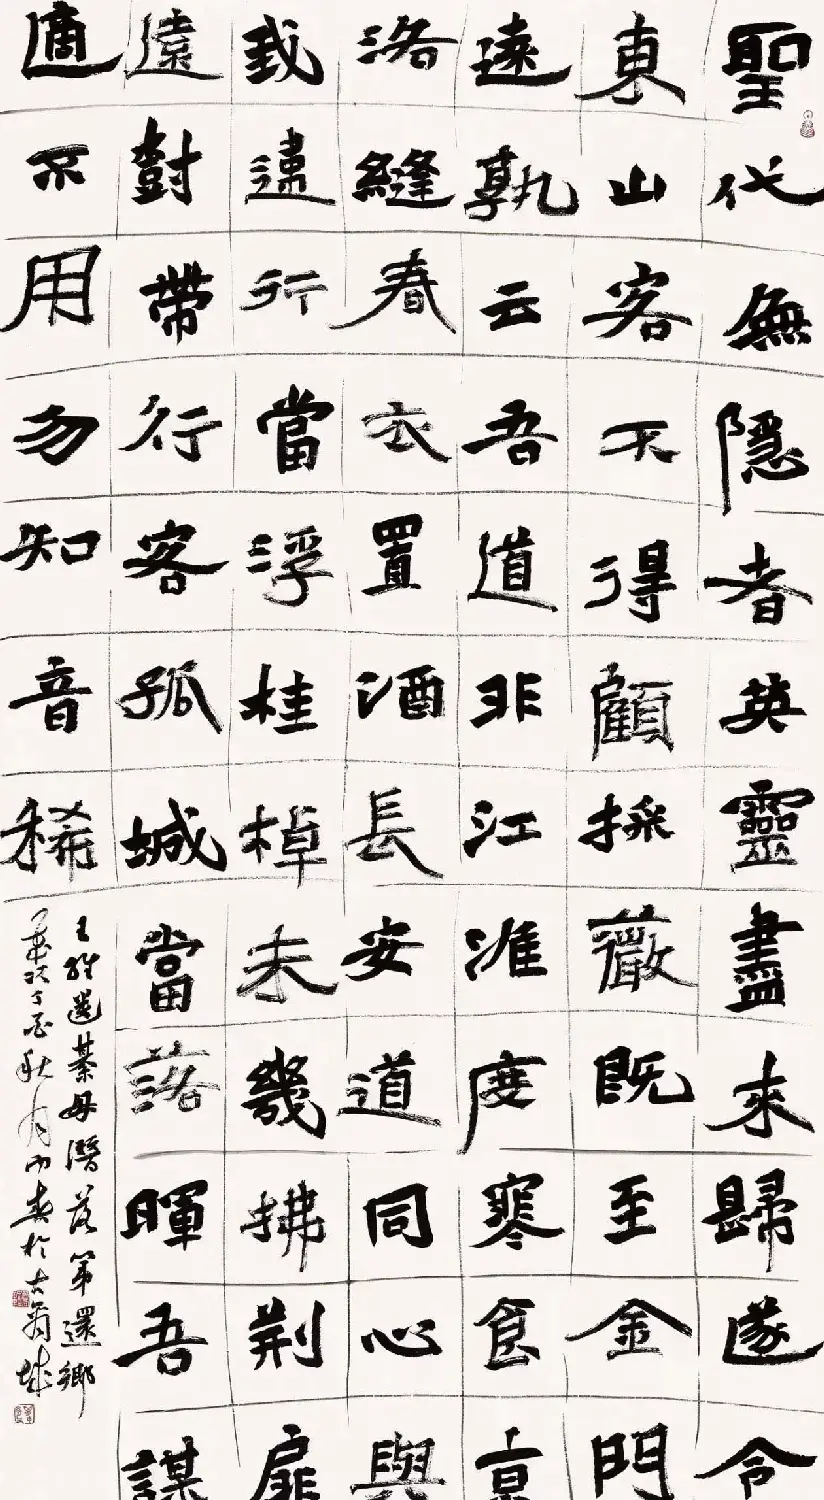 聖代無隱者英靈盡來歸遂令
東山客不得顧採薇既至金門
遠孰云吾道非江淮度寒食京
洛縫春衣置酒長安道同心與
我違行當浮桂棹未幾拂荊扉
遠樹帶行客孤城當落暉吾謀
適不用勿知音稀
王維送綦母潛落第還鄉
歲次丁酉秋月於古城